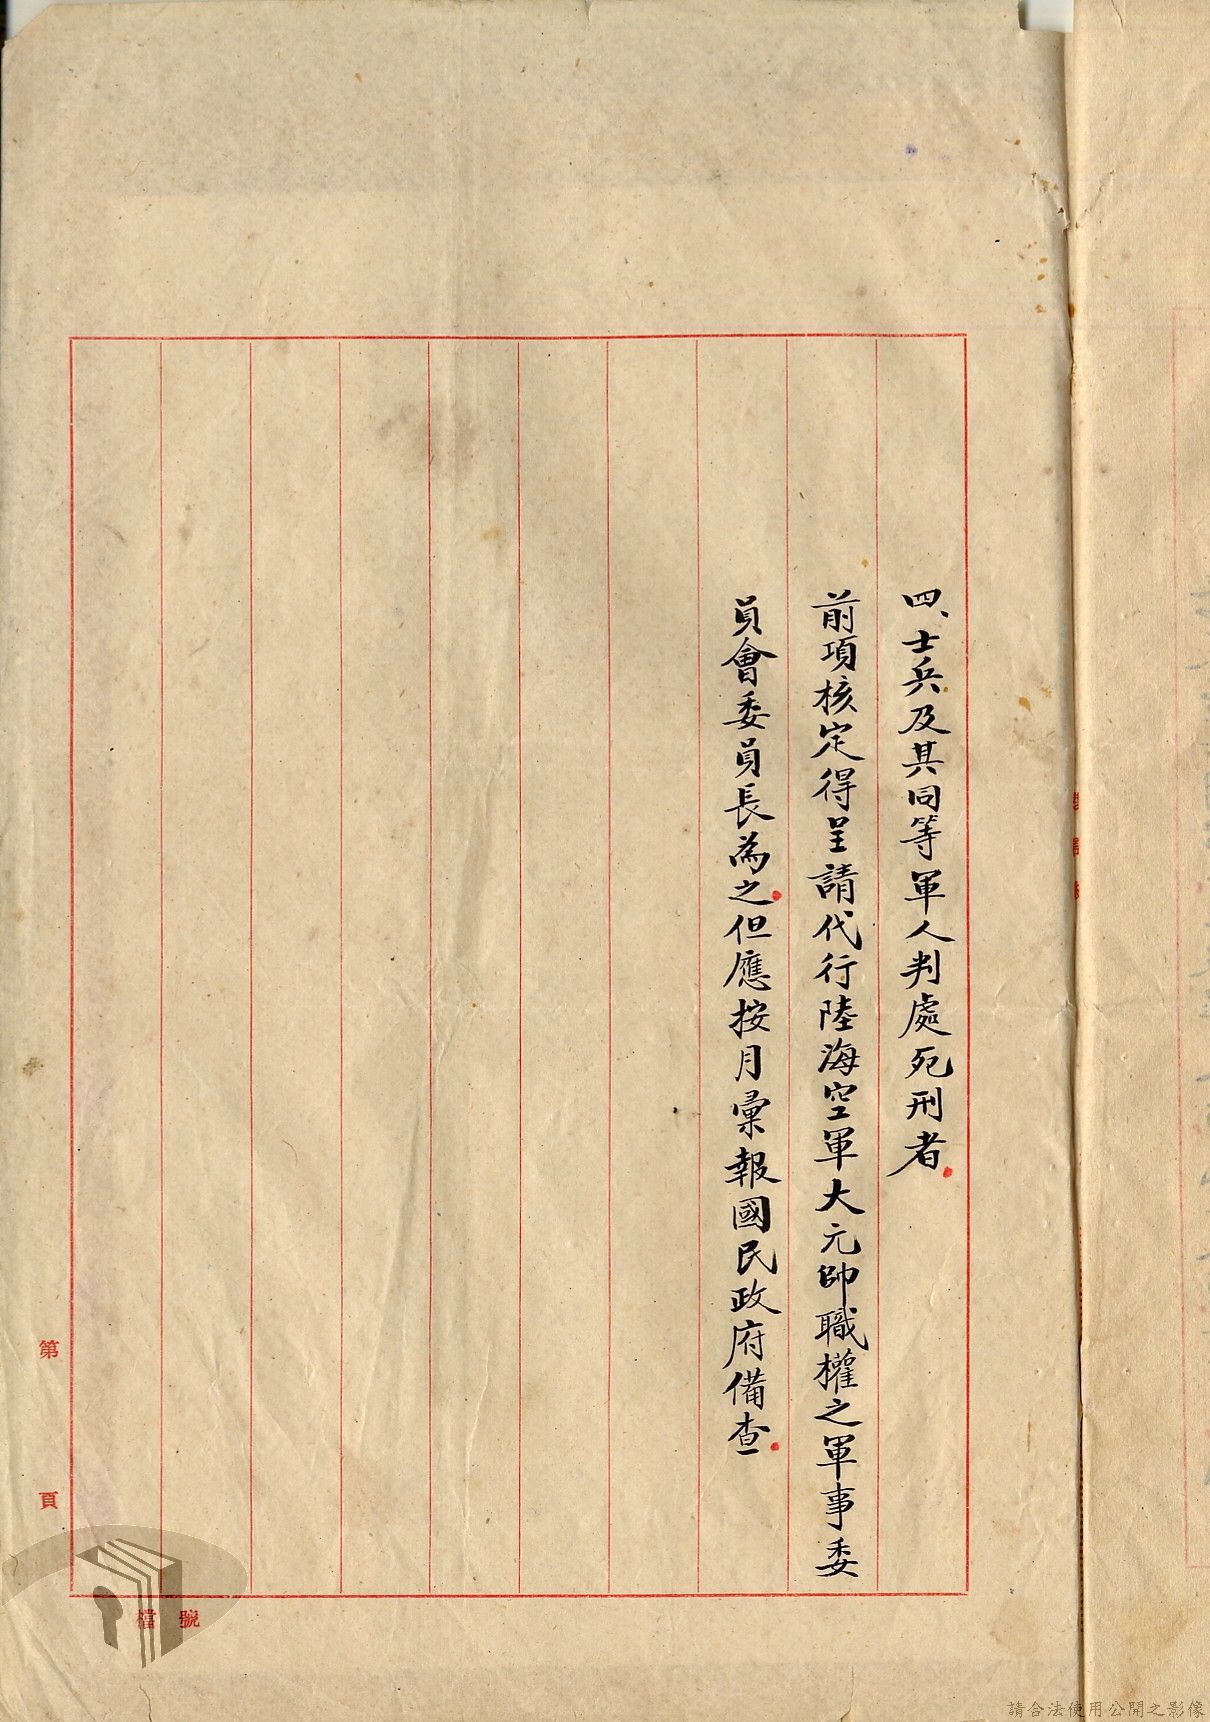 四、士兵及其同等軍人判處死刑者.
前項核定得呈請代行陸海空軍大元帥職權之軍事委
員會委員長為之.但應按月彙報國民政府備查.
第 頁
檔 號
請合法使用公開之影像